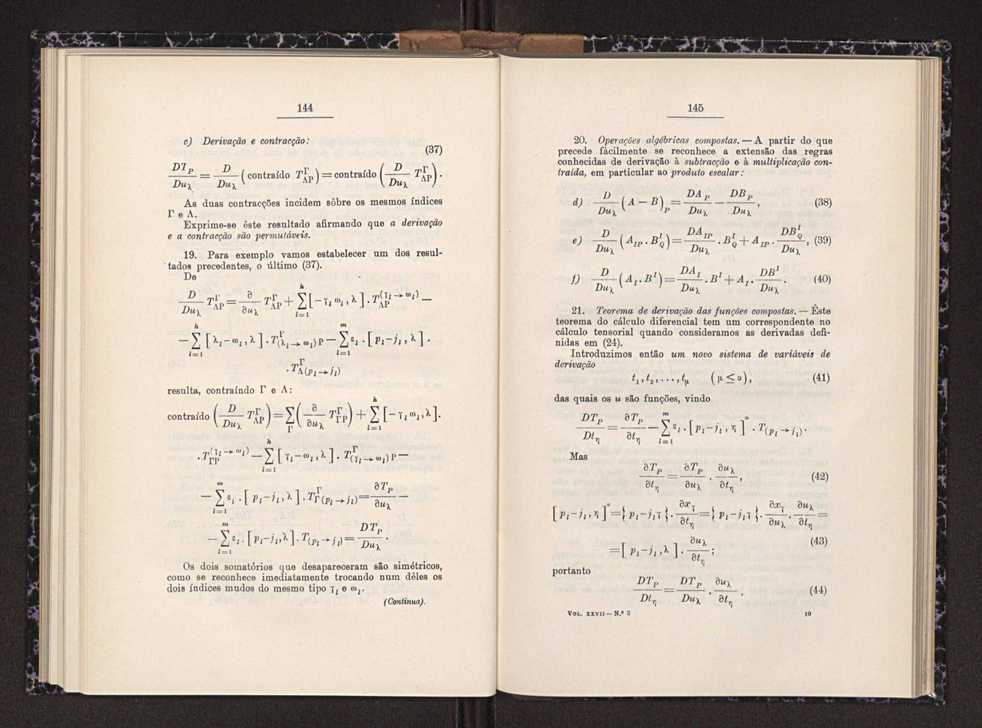 144
c) Derivação e contracção:
(37)
DT_P / Du_λ = D / Du_λ (contraído T^Γ_ΛP) = contraído (D / Du_λ T^Γ_ΛP).
As duas contracções incidem sôbre os mesmos índices
Γ e Λ.
Exprime-se êste resultado afirmando que a derivação
e a contracção são permutáveis.
19. Para exemplo vamos estabelecer um dos resul-
tados precedentes, o último (37).
De
D / Du_λ T^Γ_ΛP = ∂ / ∂u_λ T^Γ_ΛP + Σ^h_{l=1} [-γ_l ω_l, λ] . T^{(γ_l→ω_l)}_ΛP —
— Σ^h_{l=1} [λ_l-ω_l, λ] . T^Γ_{(λ_l→ω_l)P} — Σ^m_{l=1} ε_l . [p_l-j_l, λ] .
. T^Γ_{Λ(p_l→j_l)}
resulta, contraíndo Γ e Λ:
contraído (D / Du_λ T^Γ_ΛP) = Σ_Γ (∂ / ∂u_λ T^Γ_ΓP) + Σ^h_{l=1} [-γ_l ω_l, λ].
. T^{(γ_l→ω_l)}_ΓP — Σ^h_{l=1} [γ_l-ω_l, λ] . T^Γ_{(γ_l→ω_l)P} —
— Σ^m_{l=1} ε_l . [p_l-j_l, λ] . T^Γ_{Γ(p_l→j_l)} = ∂T_P / ∂u_λ —
— Σ^m_{l=1} ε_l . [p_l-j_l, λ] . T_{(p_l→j_l)} = DT_P / Du_λ .
Os dois somatórios que desapareceram são simétricos,
como se reconhece imediatamente trocando num dêles os
dois índices mudos do mesmo tipo γ_l e ω_l.
(Continua).
145
20. Operações algébricas compostas. — A partir do que
precede fàcilmente se reconhece a extensão das regras
conhecidas de derivação à subtracção e à multiplicação con-
traída, em particular ao produto escalar:
d) D / Du_λ (A — B)_P = DA_P / Du_λ — DB_P / Du_λ, (38)
e) D / Du_λ (A_IP . B^I_Q) = DA_IP / Du_λ . B^I_Q + A_IP . DB^I_Q / Du_λ, (39)
f) D / Du_λ (A_I . B^I) = DA_I / Du_λ . B^I + A_I . DB^I / Du_λ . (40)
21. Teorema de derivação das funções compostas. — Êste
teorema do cálculo diferencial tem um correspondente no
cálculo tensorial quando consideramos as derivadas defi-
nidas em (24).
Introduzimos então um novo sistema de variáveis de
derivação
t_1, t_2, . . . , t_μ (μ ≤ υ), (41)
das quais os u são funções, vindo
DT_P / Dt_η = ∂T_P / ∂t_η — Σ^m_{l=1} ε_l . [p_l-j_l, η]^* . T_{(p_l→j_l)} .
Mas
∂T_P / ∂t_η = ∂T_P / ∂u_λ . ∂u_λ / ∂t_η , (42)
[p_l-j_l, η]^* = {p_l-j_l γ} . ∂x_γ / ∂t_η = {p_l-j_l γ} . ∂x_γ / ∂u_λ . ∂u_λ / ∂t_η =
(43)
= [p_l-j_l, λ] . ∂u_λ / ∂t_η ;
portanto
DT_P / Dt_η = DT_P / Du_λ . ∂u_λ / ∂t_η . (44)
VOL. XXVII — N.º 3 10